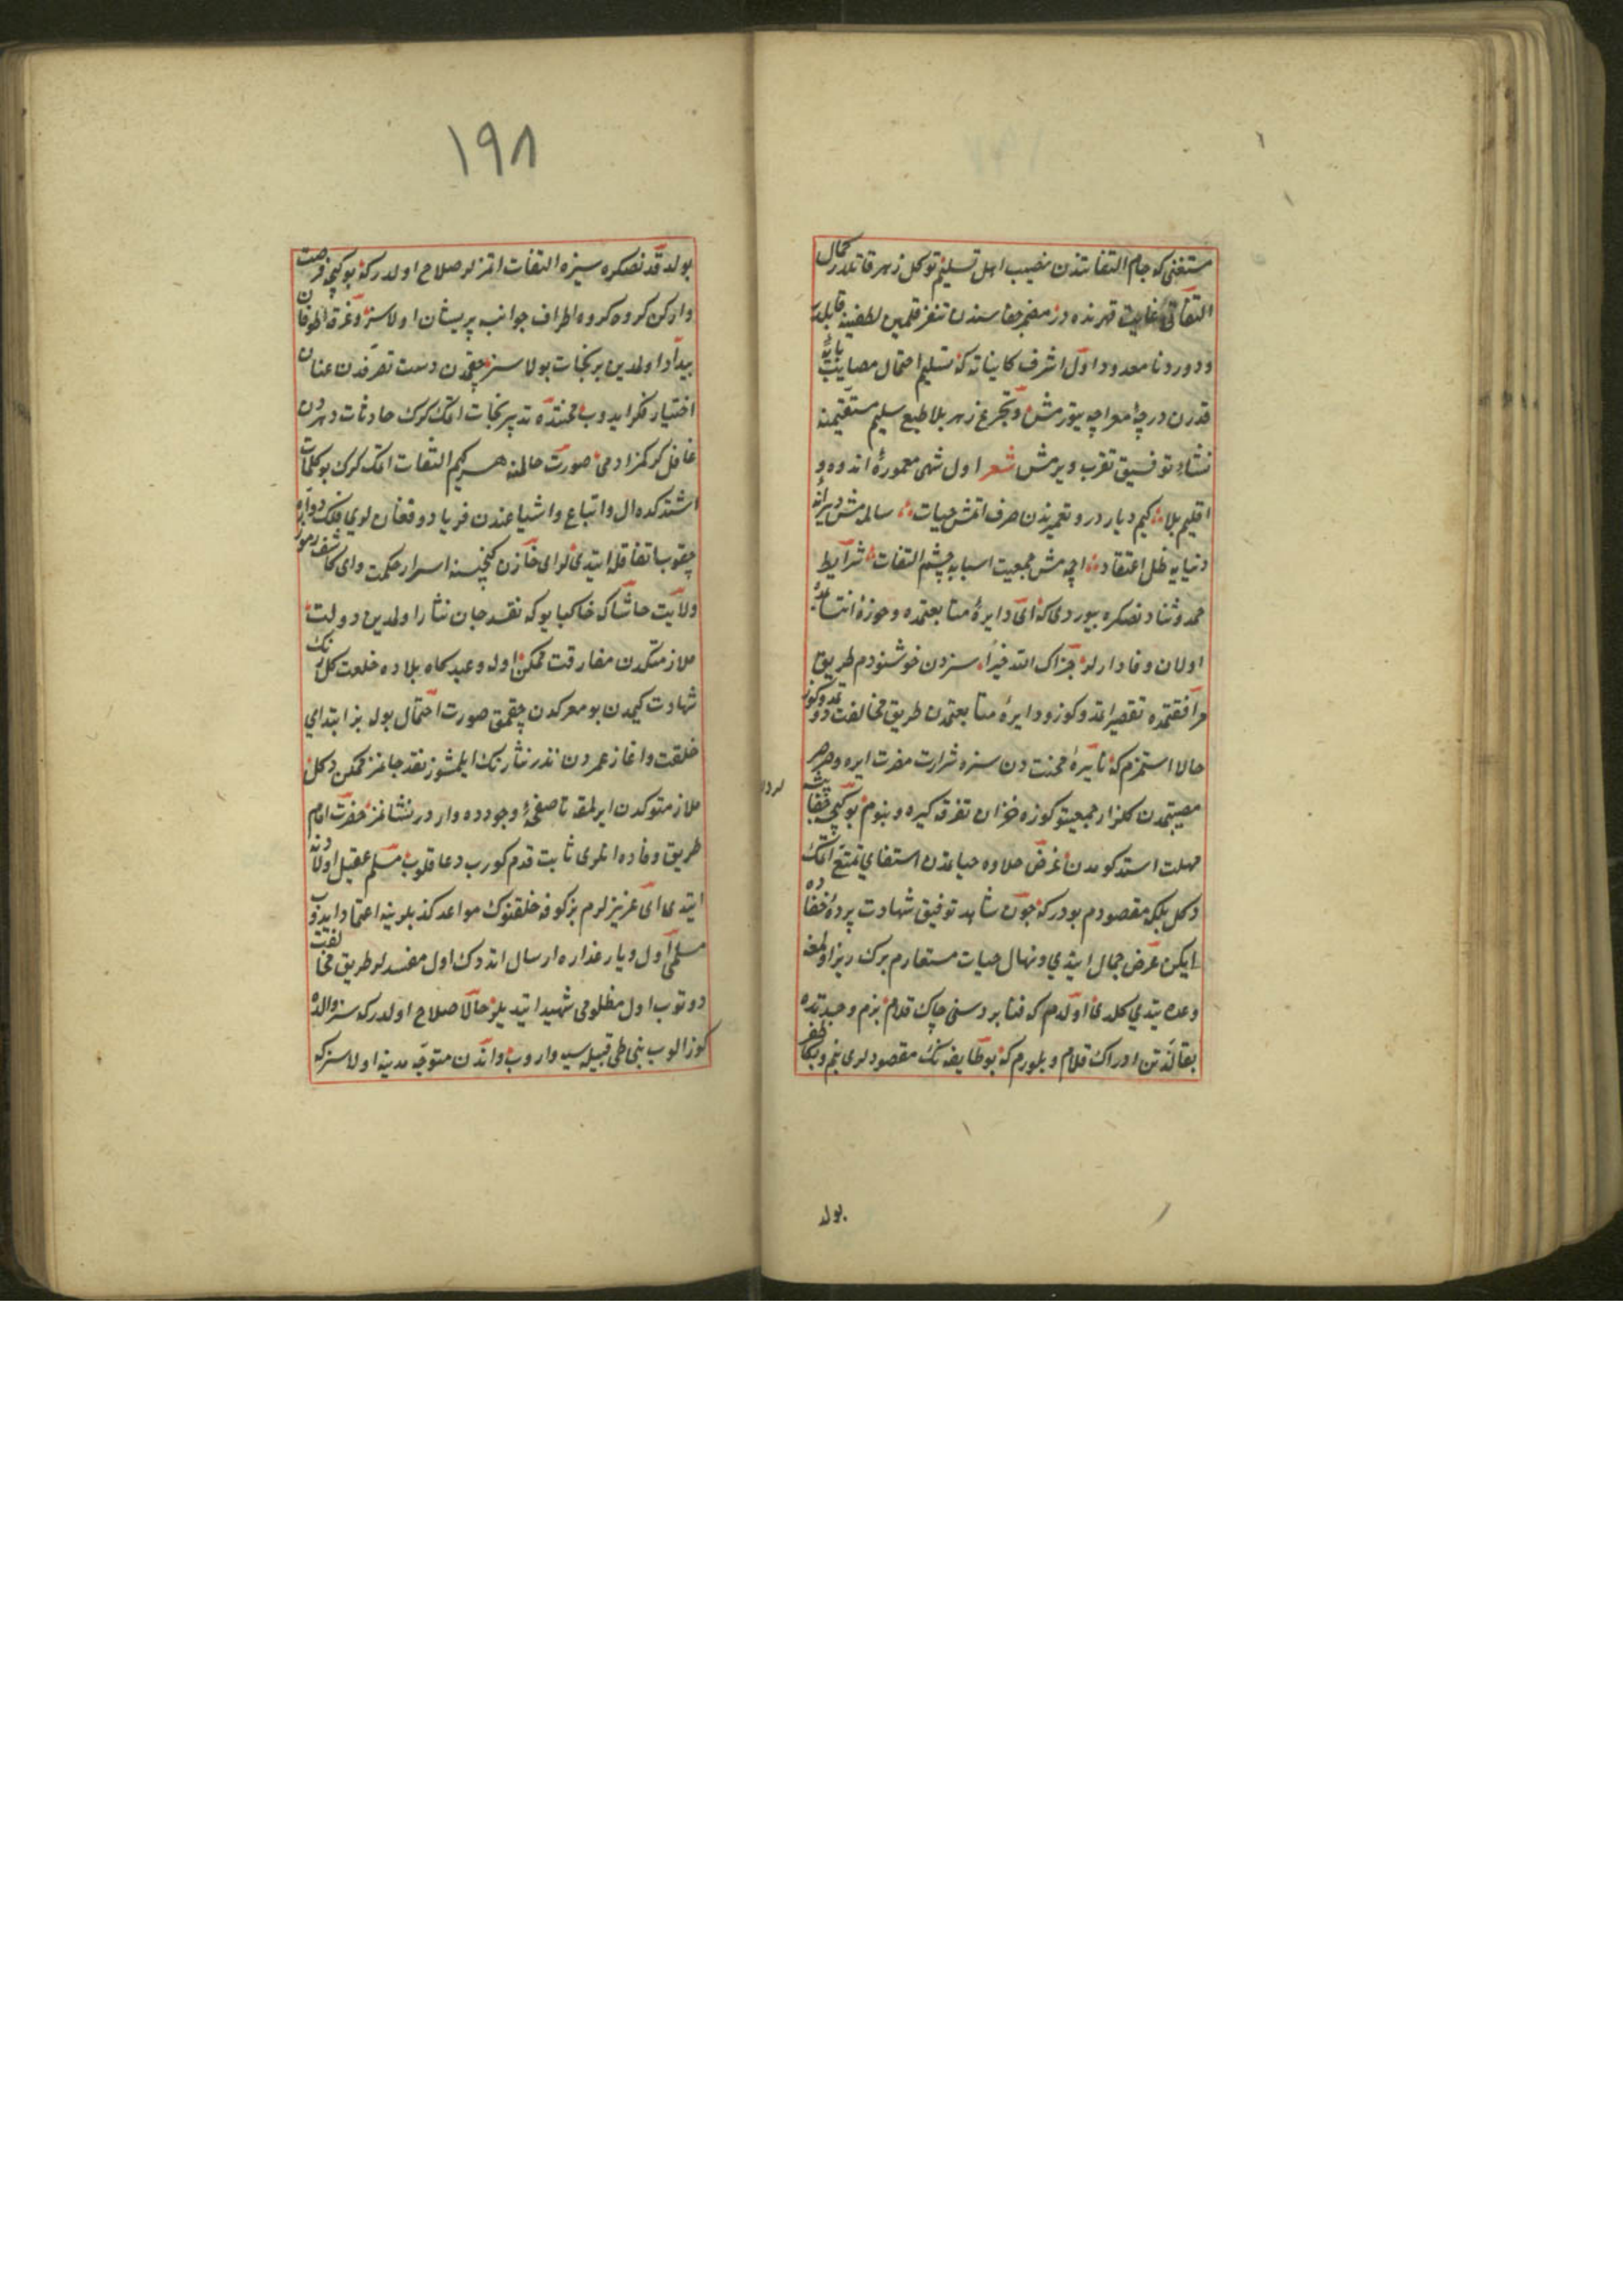 مستغنی که جام التفاتندن نصیب اهل تسلیم و توکل زهر قاتلدر کمال
التفاتی غایت قهرنده در مضمر جفاسندن تنفر قلمین لطفینه قابلدر
و درود نامعدود اول اشرف کایناته که تسلیم احتمال مصایب پایهٔ
قدرن درجهٔ معراجه یتورمش و تجرع زهر بلا طبع سلیم مستقیمنه
نشاء توفیق تقرب ویرمش شعر اول شهی معمورهٔ اندوه و
اقلیم بلا کیم دیار درد تعمیرندن صرف اتمش حیات سالمامش ویرانهٔ
دنیایه ظل اعتقاد اچمه مش جمعیت اسبابه چشم التفات شرایط
حمد و ثنادنصکره بیوردی که ای دایرهٔ متابعتمده و حوزهٔ انتسابمده
اولان وفادارلر جزاک الله خیرا سزدن خوشنودم طریق
مرافقتمده تقصیر اتمدوکوز و دایرهٔ متابعتمدن طریق مخالفت دوتمدوکوز
حالا استمزم که نایرهٔ محنتدن سزه شرارت مضرت ایره و صرصر
مصیبتمدن کلزار جمعیتوکوزه خزان تفرقه کیره و بنوم بو کیجه
مهلت استدکومدن غرض حلاوه حیاتدن استیفای تمتع اتمک
دکل بلکه مقصودم بودرکه چون شاهد توفیق شهادت پردهٔ خفاده
ایکن عرض جمال ایتدی و نهال حیات مستعارم برک ریز اولمغه
وعده یتدی کلدی اولدم که فنا بردسنی چاک قلام بزم وحدتده
بقا لذتن ادراک قلام و بلورم که بو طایفه نک مقصودلری بنم و بکا ظفر
بولد
۱۹۸
بولدقدنصکره سیزه التفات اتمزلر صلاح اولدرکه بو کیجه فرصت
وارکن کروه کروه اطراف جوانبه پریشان اولاسز و غرقهٔ طوفان
بیداد اولمدین بر نجات بولاسز چقمدن دست تصرفدن عنان
اختیار فکر ایدوب محنتده تدبیر نجات اتمک کرک حادثات دهردن
غافل کرکمز ادمی صورت حالنه هر کیم التفات اتمک کرک بو کلمات
اشتدکده ال و اتباع و اشیاعندن فریاد و فغان لوی فلک دواره
چقوب اتفاقله ایتدیلر ای خازن کنجینهٔ اسرار حکمت و ای کاشف رموز
ولایت حاشا که خاکپایوکه نقد جان نثار اولمدین دولت
ملازمتکدن مفارقت ممکن اوله و عیدکاه بلاده خلعت کلرنک
شهادت کیمدن بو معرکه دن چقمق صورت احتمال بوله بز ابتدای
خلقت و اغاز عمردن نذر نثارنک ایلمشوز نقد جانمز ممکن دکل
ملازمتوکدن ایرلمقه تا صفحهٔ وجودده واردر نشانمز حضرت امام
طریق وفاده انلری ثابت قدم کورب دعا قلوب مسلم عقیل اولادنه
ایتدی ای عزیزلرم بز کوفه خلقنوک مواعید کذبلرینه اعتماد ایدوب
مسلمی اول دیار غداره ارسال اتدوک اول مفسدلر طریق مخالفت
دوتوب اول مظلومی شهید ایتدیلر حالا صلاح اولدرکه سز والده
کوز الوب بنی طی قبیله سیه واروب و اندن متوجه مدینه اولاسز که